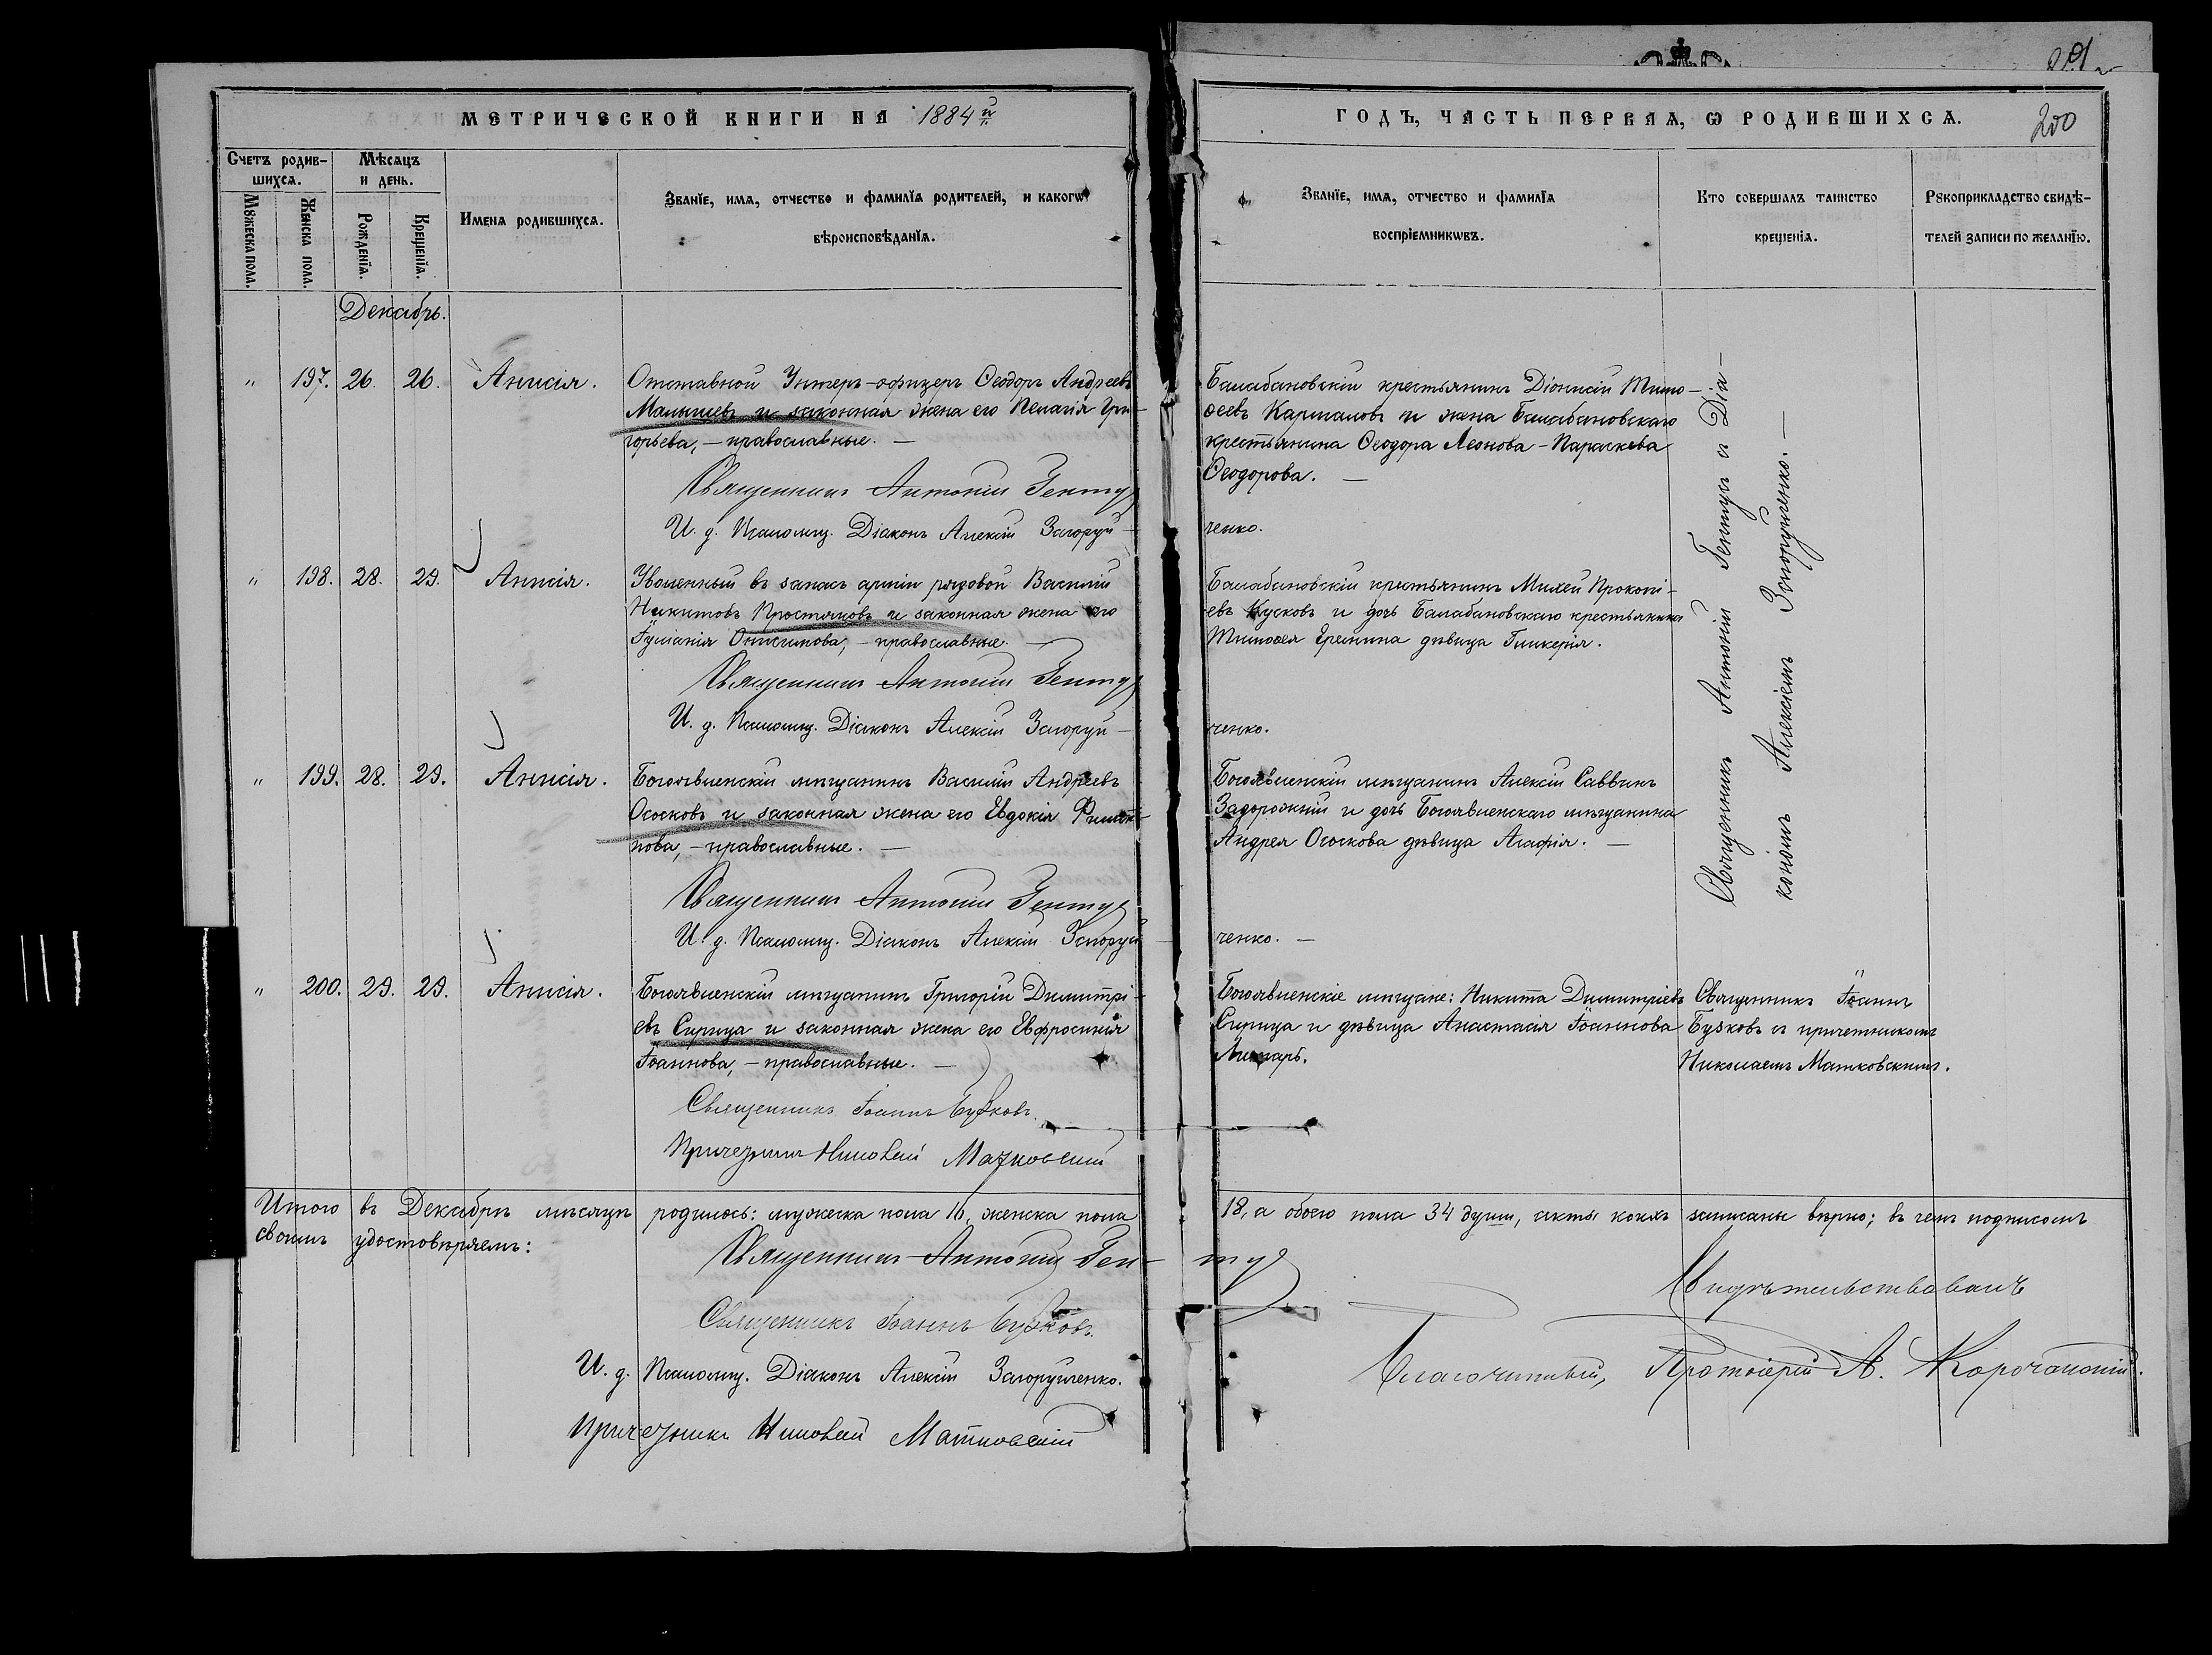 201
МЕТРИЧЕСКОЙ КНИГИ НА 1884й
ГОДЪ, ЧАСТЬ ПЕРВАЯ, Ѡ РОДИВШИХСѦ.
200
Счетъ родив-
шихсѧ.
Мѣсѧцъ
и день.
Мꙋжеска пола.
Женска пола.
Рожденїѧ.
Крещенїѧ.
Имена родившихсѧ.
Званїе, имѧ, отчество и фамилїѧ родителей, и какогѡ
вѣроисповѣданїѧ.
Званїе, имѧ, отчество и фамилїѧ
воспріемникѡвъ.
Кто совершалъ таинство
крещенїѧ.
Рꙋкоприкладство свидѣ-
телей записи по желанїю.
Декабрь.
" 197. 26. 26. Анисія.
Отставной Унтеръ-офицеръ Ѳеодоръ Андреевъ
Малышевъ и законная жена его Пелагія Гри-
горьева, – православные. –
Священникъ Антоній Генту
И. д. Псаломщ. Діаконъ Алексій Загоруй-
Балабановскій крестьянинъ Діонисій Тимо-
ѳеевъ Каршаловъ и жена Балабановскаго
крестьянина Ѳеодора Леонова – Параскева
Ѳеодорова. –
ченко.
" 198. 28. 29. Анисія.
Уволенный въ запасъ арміи рядовой Василій
Никитовъ Простяковъ и законная жена его
Іуліанія Онисимова, – православные. –
Священникъ Антоній Генту
И. д. Псаломщ. Діаконъ Алексій Загоруй-
Балабановскій крестьянинъ Михей Прокопі-
евъ Кусковъ и дочь Балабановскаго крестьянина
Тимоѳея Еремина дѣвица Гликерія.
ченко.
" 199. 28. 29. Анисія.
Богоявленскій мѣщанинъ Василій Андреевъ
Ососковъ и законная жена его Евдокія Филип-
пова, – православные. –
Священникъ Антоній Генту
И. д. Псаломщ. Діаконъ Алексій Загоруй-
Богоявленскій мѣщанинъ Алексій Саввинъ
Задорожній и дочь Богоявленскаго мѣщанина
Андрея Ососкова дѣвица Агафія. –
ченко. –
Священникъ Антоній Гентуъ съ Діа-
кономъ Алексіемъ Загоруйченко. –
" 200. 29. 29. Анисія.
Богоявленскій мѣщанинъ Григорій Димитрі-
евъ Сирица и законная жена его Евфросинія
Іоаннова, – православные. –
Священникъ Іоаннъ Бузковъ.
Причетникъ Николай Матковскій
Богоявленскіе мѣщане: Никита Димитріевъ
Сирица и дѣвица Анастасія Іоаннова
Священникъ Іоаннъ
Бузковъ съ причетникомъ
Николаемъ Матковскимъ.
Итого въ Декабрѣ мѣсяцѣ родилось: мужеска пола 16, женска пола 18, а обоего пола 34 души, акты коихъ записаны вѣрно; въ чемъ подписомъ
своимъ удостовѣряемъ:
Священникъ Антоній Ген-ту
Священникъ Іоаннъ Бузковъ.
И. д. Псаломщ. Діаконъ Алексій Загоруйченко.
Причетникъ Николай Матковскій
Свидѣтельствовалъ
Благочинный, Протоіерей А. Корочанскій.